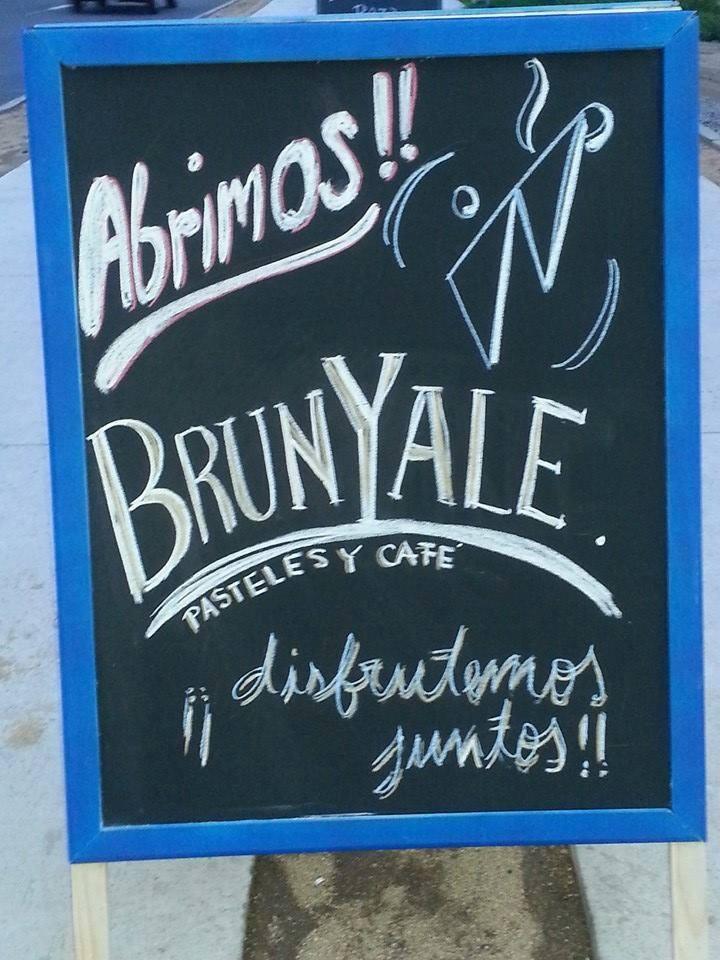 Abrimos!!
BRUNYALE.
PASTELES Y CAFÉ
¡¡ disfrutemos
juntos!!